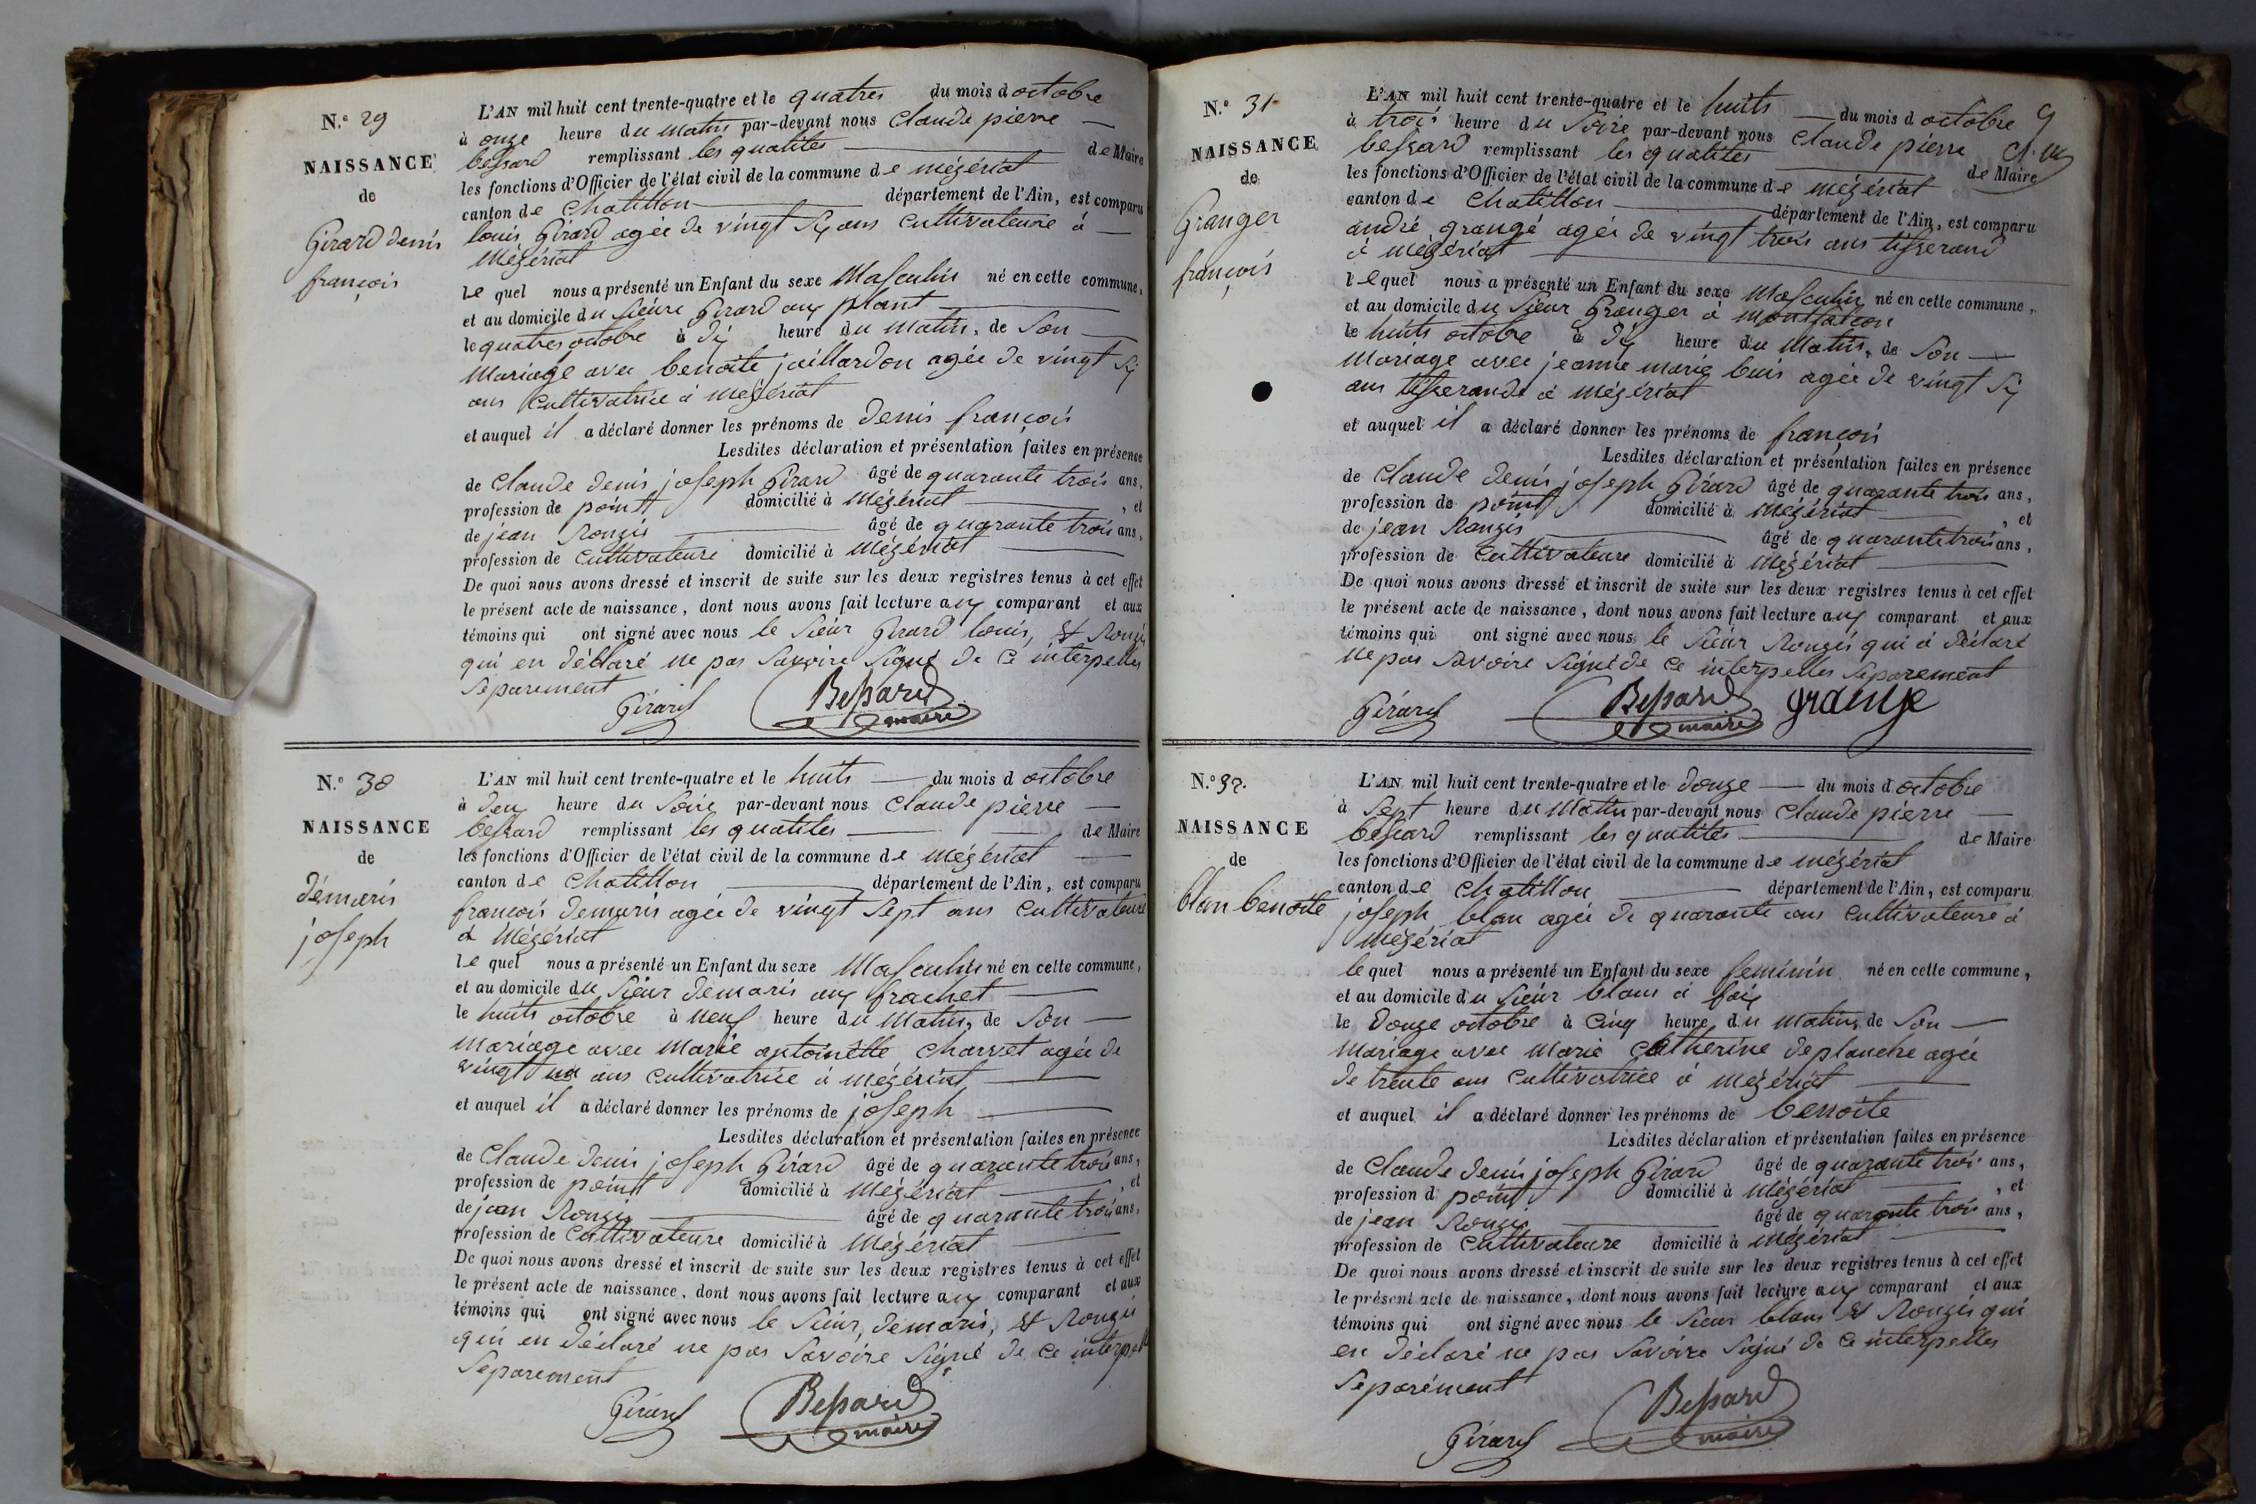 N.º 29
NAISSANCE
de
Girard denis
françois
L'AN mil huit cent trente-quatre et le quatres du mois d octobre
à onze heure du matin par-devant nous Claude pierre
bessard remplissant les qualités de Maire
les fonctions d'Officier de l'état civil de la commune de mézériat
canton de Chatillon département de l'Ain, est comparu
louis Girard agée de vingt six ans Cultivateure à
Mézériat
le quel nous a présenté un Enfant du sexe Masculin né en cette commune,
et au domicile du sieure Girard aux plant
le quatres octobre à dix heure du matin, de Son
Mariage avec benoite jaillardon agée de vingt six
ans Cultivatrice à mézériat
et auquel il a déclaré donner les prénoms de denis françois
Lesdites déclaration et présentation faites en présence
de Claude denis joseph Girard âgé de quarante trois ans,
profession de domicilié à Mézériat , et
de jean Rongis âgé de quarante trois ans,
profession de Cultivateure domicilié à Mézériat
De quoi nous avons dressé et inscrit de suite sur les deux registres tenus à cet effet
le présent acte de naissance, dont nous avons fait lecture aux comparant et aux
témoins qui ont signé avec nous le Sieur Girard louis, et Rongis
qui en déclaré ne pas Savoire Signé de ce interpelles
Separement
Girard Bessard
maire
N.º 30
NAISSANCE
de
démaris
joseph
L'AN mil huit cent trente-quatre et le huits du mois d octobre
à deux heure du Soire par-devant nous Claude pierre
bessard remplissant les qualités de Maire
les fonctions d'Officier de l'état civil de la commune de mézériat
canton de Chatillon département de l'Ain, est comparu
francois demaris agée de vingt Sept ans Cultivateure
à Mézériat
le quel nous a présenté un Enfant du sexe Masculin né en cette commune,
et au domicile du Sieur demaris aux frachet
le huits octobre à neuf heure du Matin, de Son
mariage avec Marie antoinette Charvet agée de
vingt un ans Cultivatrice à mézériat
et auquel il a déclaré donner les prénoms de joseph
Lesdites déclaration et présentation faites en présence
de Claude denis joseph Girard âgé de quarante trois ans,
profession de domicilié à Mézériat , et
de jean Rongis âgé de quarante trois ans,
profession de Cultivateure domicilié à Mézériat
De quoi nous avons dressé et inscrit de suite sur les deux registres tenus à cet effet
le présent acte de naissance, dont nous avons fait lecture aux comparant et aux
témoins qui ont signé avec nous le Sieur, demaris, et Rongis
qui en déclaré ne pas Savoire Signé de ce interpelles
Separement
Girard Bessard
maire
N.º 31
NAISSANCE
de
Granger
françois
L'AN mil huit cent trente-quatre et le huits du mois d octobre 9
à trois heure du Soire par-devant nous Claude pierre
bessard remplissant les qualités de Maire
les fonctions d'Officier de l'état civil de la commune de mézériat
canton de Chatillon département de l'Ain, est comparu
andré grangé agée de vingt trois ans tisserand
à mézériat
le quel nous a présenté un Enfant du sexe Masculin né en cette commune,
et au domicile du Sieur Granger à montfalcon
le huits octobre à dix heure du Matin, de Son
Mariage avec jeanne marie buis agée de vingt Six
ans tisserande à mézériat
et auquel il a déclaré donner les prénoms de françois
Lesdites déclaration et présentation faites en présence
de Claude denis joseph Girard âgé de quarante trois ans,
profession de domicilié à Mézériat , et
de jean Rongis âgé de quarante trois ans,
profession de Cultivateure domicilié à Mézériat
De quoi nous avons dressé et inscrit de suite sur les deux registres tenus à cet effet
le présent acte de naissance, dont nous avons fait lecture aux comparant et aux
témoins qui ont signé avec nous le Sieur Rongis qui à déclaré
ne pas Savoire Signé de ce interpelles Separement
Girard Bessard grange
maire
N.º 32.
NAISSANCE
de
blan benoite
L'AN mil huit cent trente-quatre et le douze du mois d octobre
à Sept heure du Matin par-devant nous Claude pierre
bessard remplissant les qualités de Maire
les fonctions d'Officier de l'état civil de la commune de mézériat
canton de Chatillon département de l'Ain, est comparu
joseph blan agée de quarante ans Cultivateure à
mézériat
le quel nous a présenté un Enfant du sexe feminin né en cette commune,
et au domicile du Sieur blans à foix
le douze octobre à Cinq heure du matin, de Son
Mariage avec Marie Catherine deplanche agée
de trente ans Cultivatrice à mézériat
et auquel il a déclaré donner les prénoms de benoite
Lesdites déclaration et présentation faites en présence
de Claude denis joseph Girard âgé de quarante trois ans,
profession d domicilié à Mézériat , et
de jean Rongis âgé de quarante trois ans,
profession de Cultivateure domicilié à mézériat
De quoi nous avons dressé et inscrit de suite sur les deux registres tenus à cet effet
le présent acte de naissance, dont nous avons fait lecture aux comparant et aux
témoins qui ont signé avec nous le Sieur blans et Rongis qui
en déclaré ne pas Savoire Signé de ce interpelles
Separément
Girard Bessard
maire